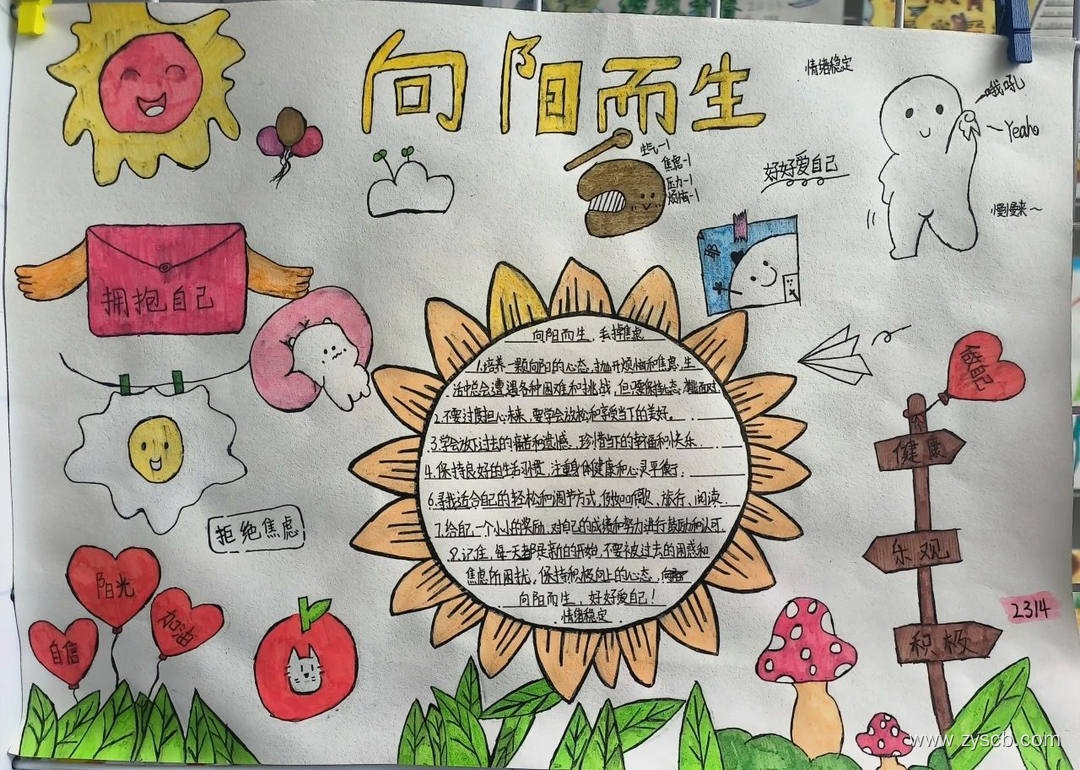 向阳而生
情绪稳定
哦吼
Yeaho
慢慢来～
好好爱自己
生气-1
焦虑-1
压力-1
烦恼-1
拥抱自己
向阳而生，丢掉焦虑
1.培养一颗向阳的心态，抛开烦恼和焦虑，生
活中总会遭遇各种困难和挑战，但要保持心态，
2.不要过度担心未来，要学会放松和享受当下的美好。
3.学会放下过去的痛苦和遗憾，珍惜当下的幸福和快乐.
4.保持良好的生活习惯，注重身体健康和心灵平衡.
6.寻找适合自己的轻松和调节方式，例如听歌、旅行、阅读.
7.给自己一个小小的奖励，对自己的成绩和努力进行鼓励和认可
8.记住，每一天都是新的开始，不要被过去的困惑和
焦虑所困扰，保持积极向上的心态，
向阳而生，好好爱自己！
情绪稳定
做自己
健康
乐观
积极
拒绝焦虑
阳光
加油
自信
2314
www.zyscb.com